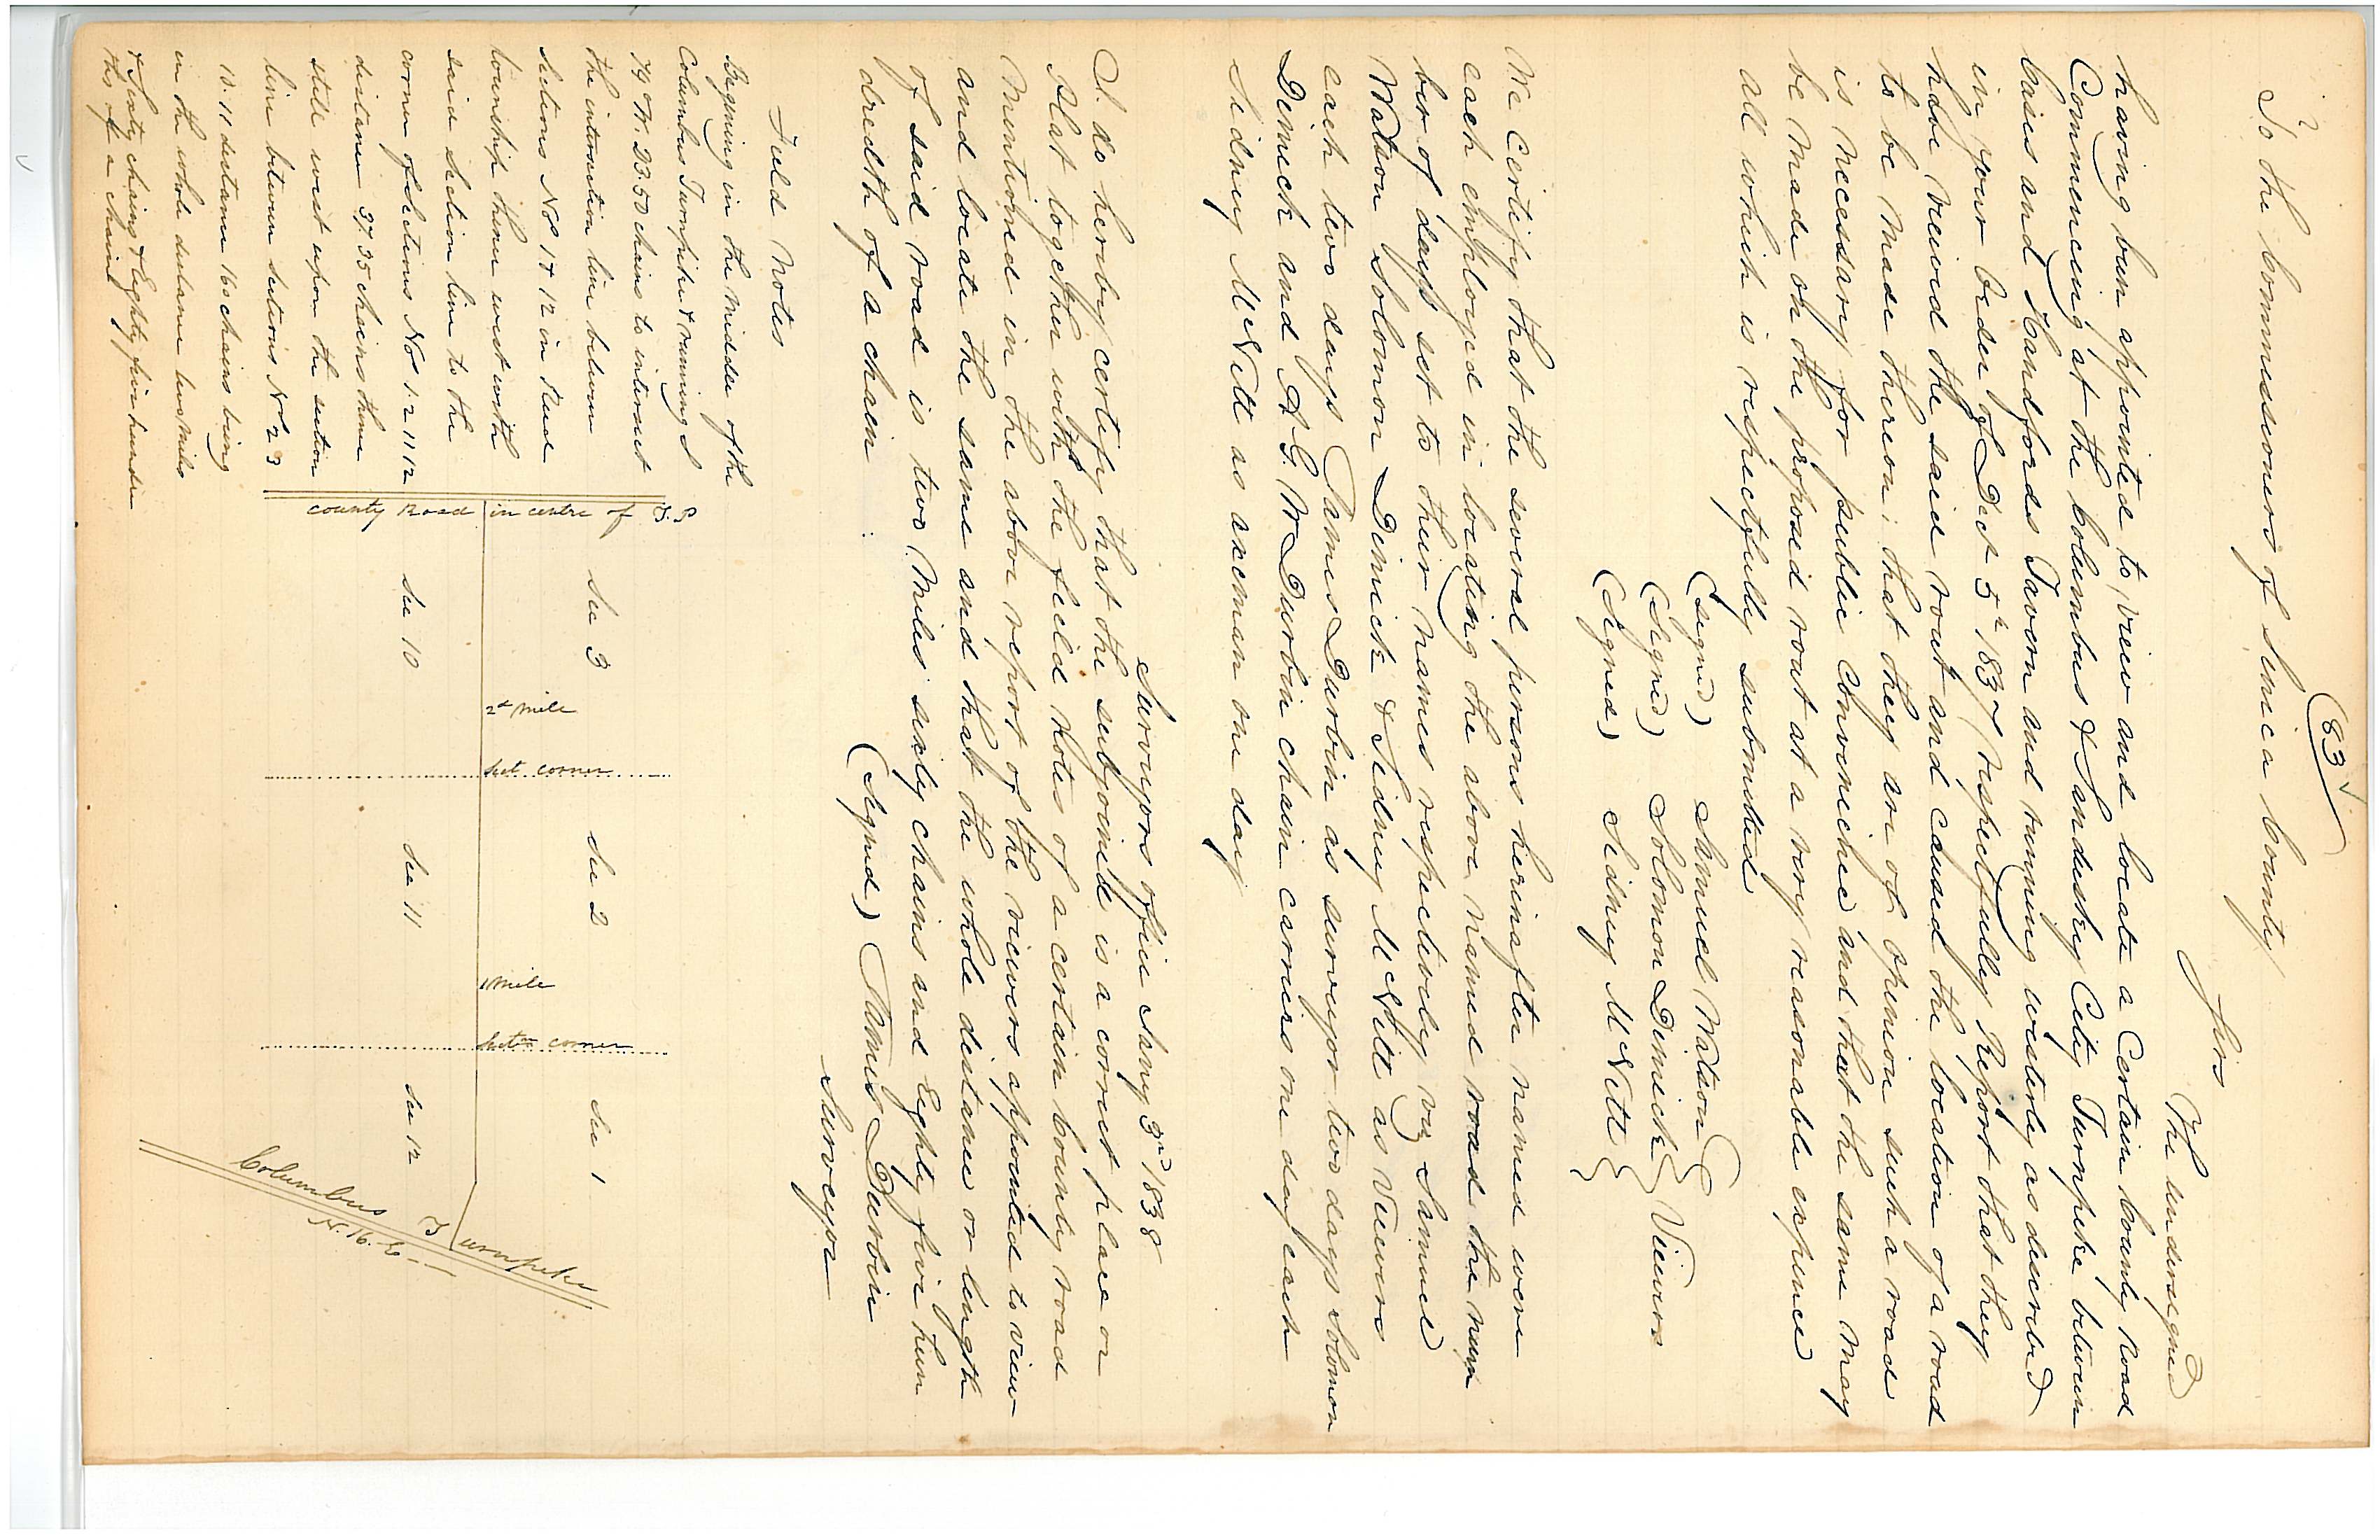 83
To the Commissioners of Seneca County
Sirs
The undersigned
having been appointed to view and locate a Certain County Road
Commencing at the Columbus & Sandusky City Turnpike between
Caises and Handfords Tavern and running westerly as described
in your order of Dect 5th 1837 respectfully Report that they
have viewed the said rout and caused the location of a road
to be made thereon; that they are of opinion such a road
is necessary for public convenience and that the same may
be made on the proposed rout at a very reasonable expence
all which is respectfully submitted
(Signd) Samuel Watson
(Signd) Solomon Dimick } Viewers
(Signed) Sidney McNett
We Certify that the several persons herinafter named were
each employed in locating the above named road the num
ber of days set to their names respectively viz Samuel
Watson Solomon Dimick & Sidney McNett as Viewers
each two days James Durbin as surveyor two days Solomon
Dimick and A. G. W Durbin chain carriers one day each
Sidney McNett as axeman one day
Surveyors office Jany 3rd 1838
I do herby certify that the subjoined is a correct place or
Plat together with the field notes of a certain County road
Mentioned in the above report of the viewers appointed to view
and locate the same and that the whole distance or length
of said road is two Miles sixty chains and Eighty five hun
dredth of a chain
(Signed) James Durbin
Surveyor
Field Notes
Begining in the middle of the
Columbus Turnpike & running S
74 W. 23.50 chains to intersect
the intersection line between
Sections No 1 & 12 in Reed
township thence west with
said section line to the
corner of sections No 1. 2 11 12
distance 37.35 chains thence
still west upon the section
line between sections No 2 3
10. 11 distance 160 chains being
in the whole distance two Miles
& Sixty chains & Eighty five hundre
ths of a chain
county Road in centre of T.P
Sec 3
Sec 10
2d Mile
Sect corner
Sec 2
Sec 11
1 Mile
Sectn corner
Sec 1
Sec 12
Columbus Turnpike
N. 16. E